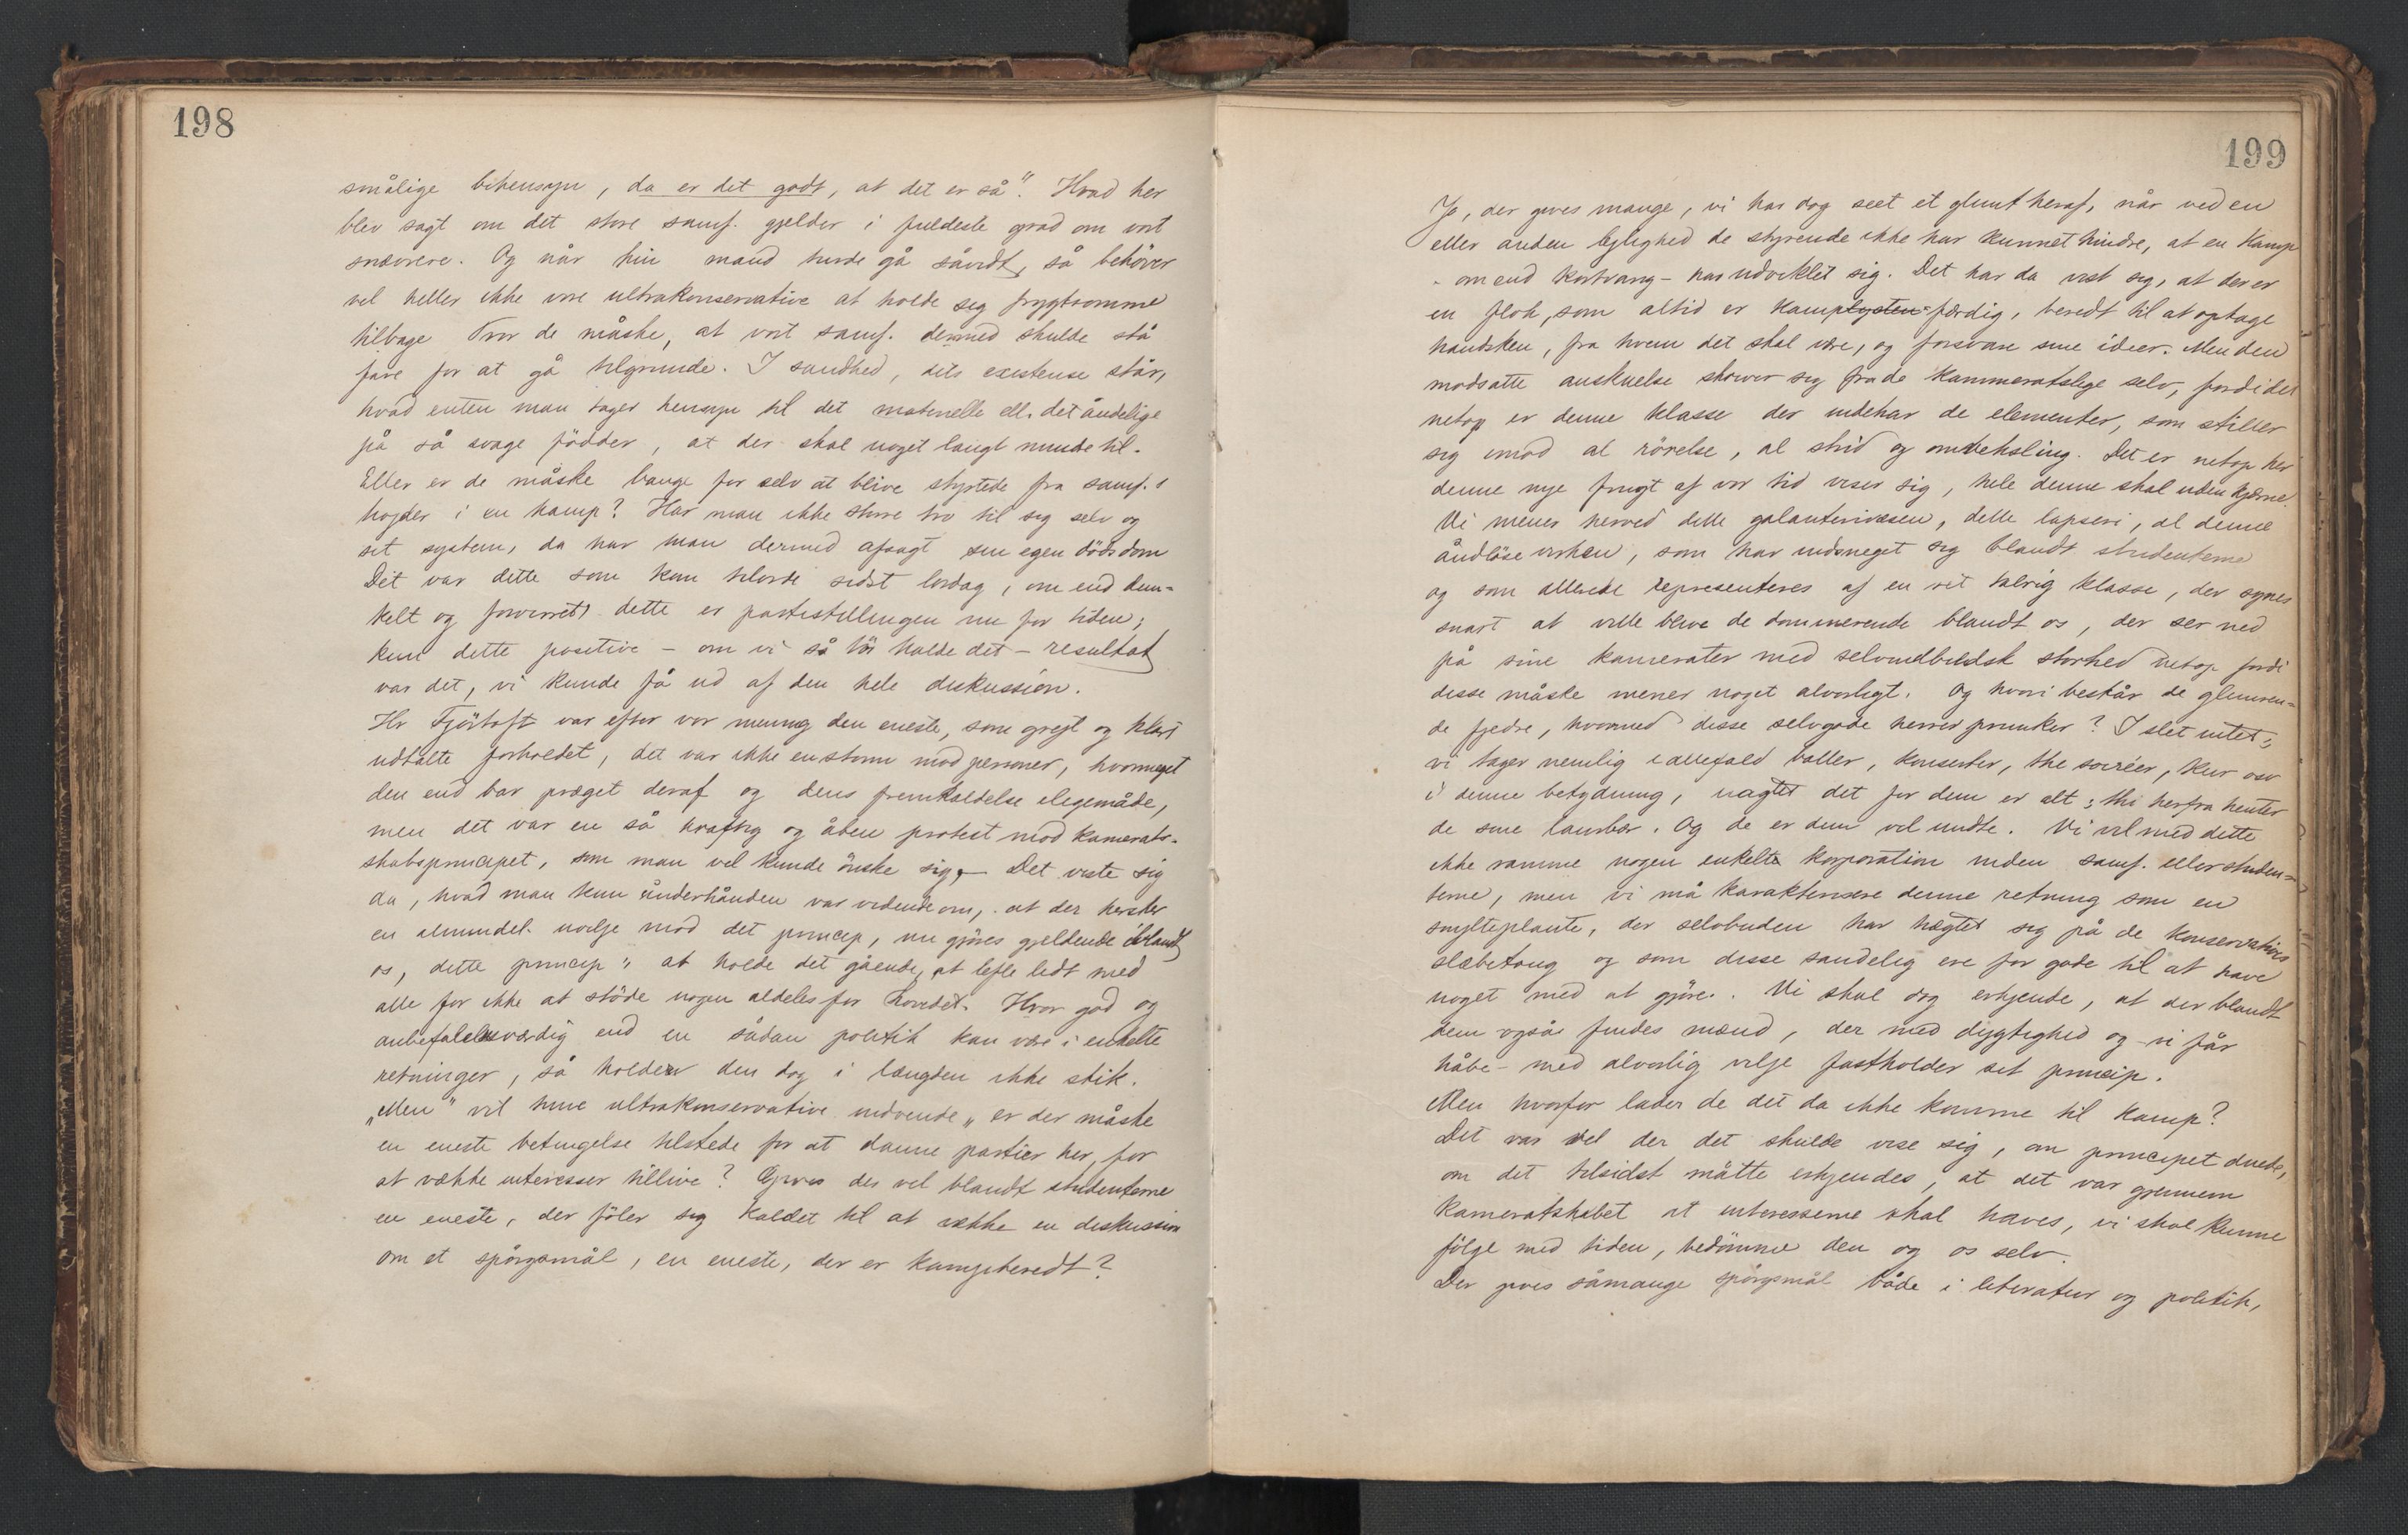 198
smålige bihensyn, da er det godt, at det er så". Hvad her
blev sagt om det store samf. gjelder i fuldeste grad om vort
snævrere. Og når hin mand turde gå såvidt, så behöver
vel heller ikke vore ultrakonservative at holde sig frygtsomme
tilbage Tror de måske, at vort samf. dermed skulde stå
fare for at gå tilgrunde. I sandhed, dets existense står,
hvad enten man tager hensyn til det materielle ell. det åndelige
på så svage födder, at der skal noget langt mindre til.
Eller er de måske bange for selv at blive styrtede fra samf.s
højder i en kamp? Har man ikke större tro til sig selv og
sit system, da har man dermed afsagt sin egen dödsdom
Det var dette som kom tilorde sidst lördag, om end dun-
kelt og forvirret; dette er partistillingen nu for tiden;
kun dette positive – om vi så tör kalde det – resultat
var det, vi kunde få ud af den hele diskussion.
Hr Fjörtoft var efter vor mening den eneste, som grejt og klart
udtalte forholdet, det var ikke en storm mod personer, hvormeget
den end bar præget deraf og dens fremkaldelse ligemåde,
men det var en så kraftig og åben protest mod kamerat-
skabsprincipet, som man vel kunde önske sig, – Det viste sig
da, hvad man kun underhånden var vidende om, at der hersker
en almindel. uvilje mod det princip, nu gjöres gjeldende iblandt
os, dette princip "at holde det gående, at lefle lidt med
alle for ikke at støde nogen aldeles for hovedet. Hvor god og
anbefalelsesværdig end en sådan politik kan være i enkelte
retninger, så holder den dog i længden ikke stik.
„Men" vil hine ultrakonservative indvende „er der måske
en eneste betingelse tilstede for at danne partier her, for
at vække interesser tillive? Gives der vel blandt studenterne
en eneste, der föler sig kaldet til at vække en diskussion
om et spörgsmål, en eneste, der er kampberedt?
199
Jo, der gives mange, vi har dog seet et glimt heraf, når ved en
eller anden lejlighed de styrende ikke har kunnet hindre, at en kamp
- om end kortvarig – har udviklet sig. Det har da vist sig, at der er
en flok, som altid er kamplysten-færdig, beredt til at optage
handsken, fra hvem det skal være, og forsvare sine ideer. Men den
modsatte anskuelse skriver sig fra de kammeratslige selv, fordi det
netop er denne klasse der indehar de elementer, som stiller
sig imod al rörelse, al strid og omveksling. Det er netop her
denne nye frugt af vor tid viser sig, hele denne skal uden kjærne.
Vi mener herved dette galanterivæsen, dette lapseri, al denne
åndlöse virken, som har indsneget sig blandt studenterne
og som allerede representeres af en ret talrig klasse, der synes
snart at ville blive de dominerende blandt os, der ser ned
på sine kamerater med selvindbildsk storhed netop fordi
disse måske mener noget alvorligt. Og hvori består de glimren-
de fjedre, hvormed disse selvgode herrer prunker? I slet intet;
vi tager nemlig i allefald baller, konserter, the soiréer, kur osv
i denne betydning, uagtet det for dem er alt; thi herfra henter
de sine laurbær. Og de er dem vel undte. Vi vil med dette
ikke ramme nogen enkelte korporation inden samf. eller studen-
terne, men vi må karakterisere denne retning som en
snylteplante, der selvbuden har hægtet sig på de konservatives
slæbetoug og som disse sandelig ere for gode til at have
noget med at gjöre. Vi skal dog erkjende, at der blandt
dem også findes mænd, der med dygtighed og – vi får
håbe – med alvorlig vilje fastholder sit princip.
Men hvorfor lader de det da ikke komme til kamp?
Det var vel der det skulde vise sig, om principet duede,
om det tilsidst måtte erkjendes, at det var gjennem
kameratskabet at interesserne skal haves, vi skal kunne
fölge med tiden, bedömme den og os selv.
Der gives såmange spörgsmål både i literatur og politik,